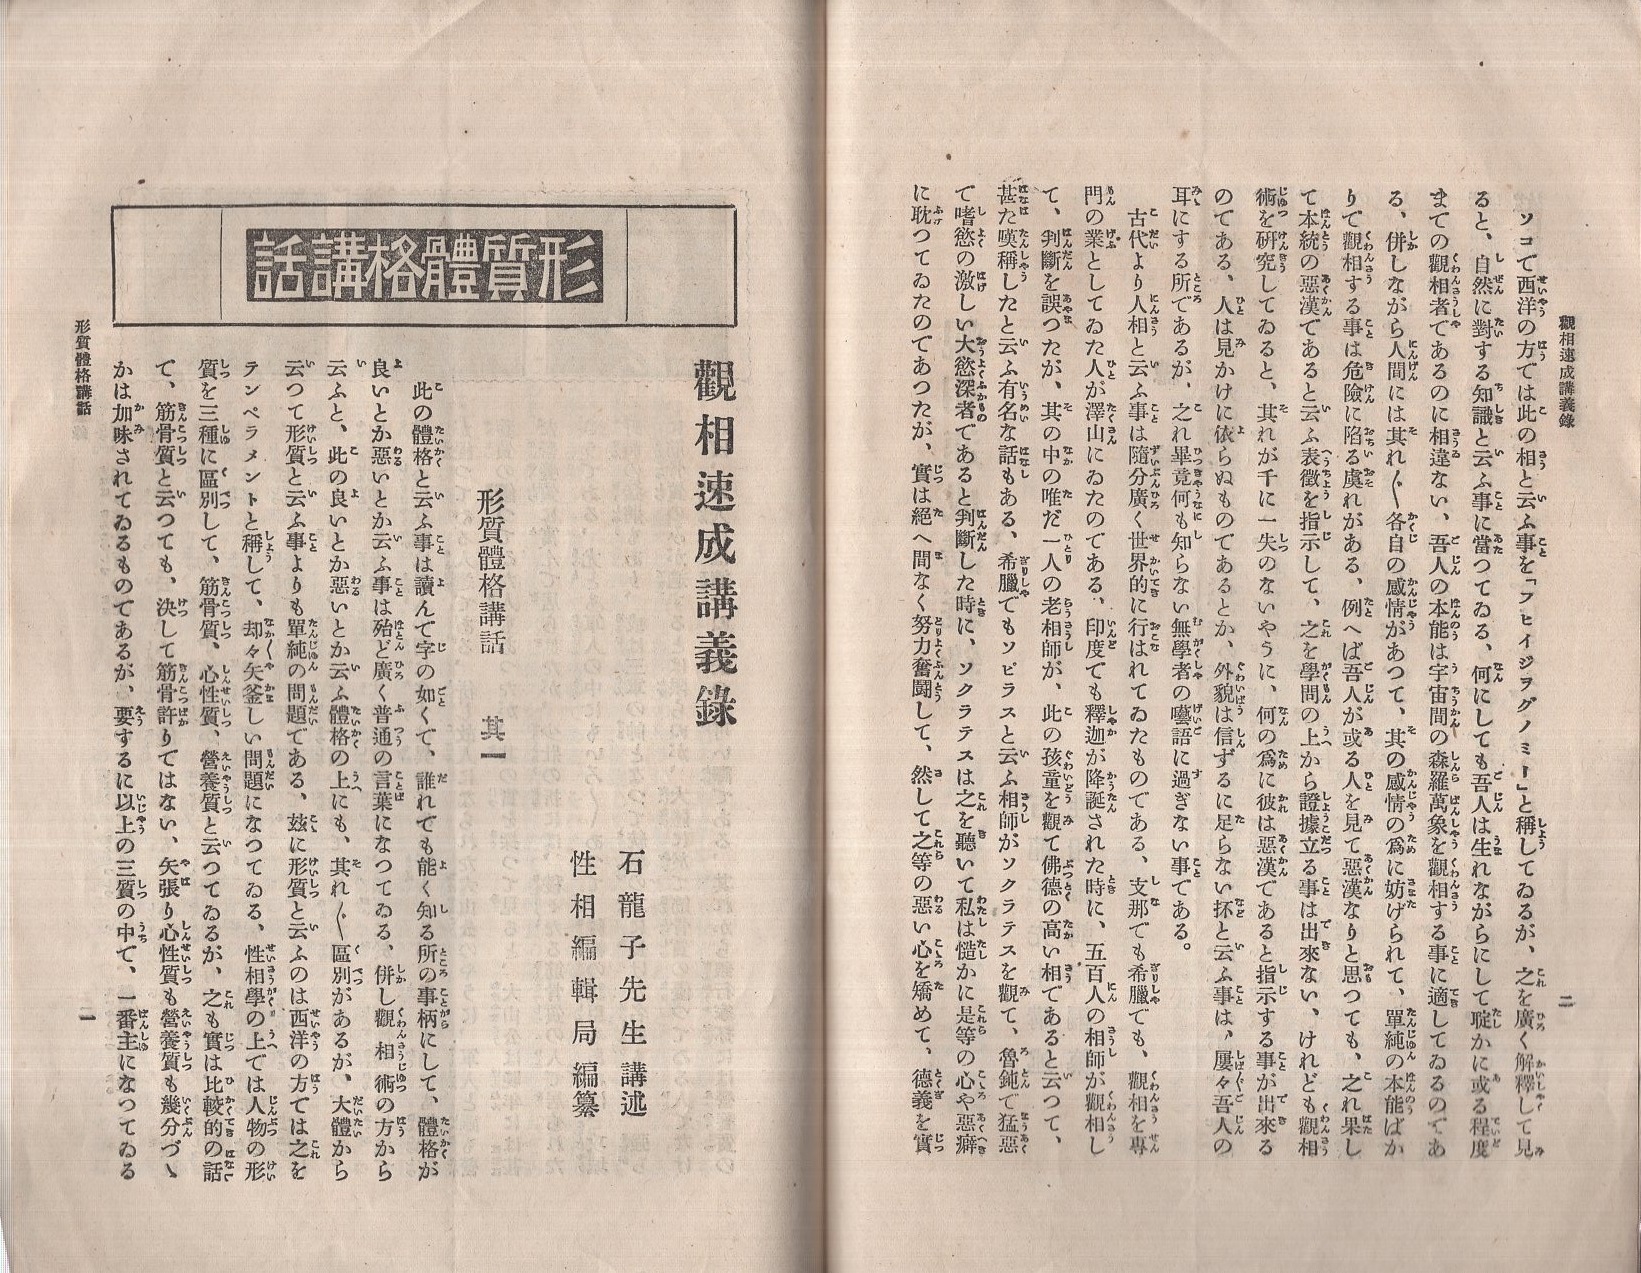 觀相速成講義錄
二
ソコで西洋の方では此の相と云ふ事を「フヒイジヲグノミー」と稱してゐるが、之を廣く解釋して見
ると、自然に對する知識と云ふ事に當つてゐる、何にしても吾人は生れながらにして聢かに或る程度
までの觀相者であるのに相違ない、吾人の本能は宇宙間の森羅萬象を觀相する事に適してゐるのであ
る、併しながら人間には其れ〳〵各自の感情があつて、其の感情の爲に妨げられて、單純の本能ばか
りで觀相する事は危險に陷る虞れがある、例へば吾人が或る人を見て惡漢なりと思つても、之れ果し
て本統の惡漢であると云ふ表徵を指示して、之を學問の上から證據立る事は出來ない、けれども觀相
術を硏究してゐると、其れが千に一失のないやうに、何の爲に彼は惡漢であると指示する事が出來る
のである、人は見かけに依らぬものであるとか、外貌は信ずるに足らない抔と云ふ事は、屢々吾人の
耳にする所であるが、之れ畢竟何も知らない無學者の囈語に過ぎない事である。
古代より人相と云ふ事は隨分廣く世界的に行はれてゐたものである、支那でも希臘でも、觀相を專
門の業としてゐた人が澤山にゐたのである、印度でも釋迦が降誕された時に、五百人の相師が觀相し
て、判斷を誤つたが、其の中の唯だ一人の老相師が、此の孩童を觀て佛德の高い相であると云つて、
甚た嘆稱したと云ふ有名な話もある、希臘でもソピラスと云ふ相師がソクラテスを觀て、魯鈍で猛惡
て嗜慾の激しい大慾深者であると判斷した時に、ソクラテスは之を聽いて私は慥かに是等の心や惡癖
に耽つてゐたのであつたが、實は絕へ間なく努力奮鬪して、然して之等の惡い心を矯めて、德義を實
形質體格講話
觀相速成講義錄
石龍子先生講述
性相編輯局編纂
形質體格講話 其一
此の體格と云ふ事は讀んで字の如くで、誰れでも能く知る所の事柄にして、體格が
良いとか惡いとか云ふ事は殆ど廣く普通の言葉になつてゐる、併し觀相術の方から
云ふと、此の良いとか惡いとか云ふ體格の上にも、其れ〳〵區別があるが、大體から
云つて形質と云ふ事よりも單純の問題である、玆に形質と云ふのは西洋の方ては之を
テンペラメントと稱して、却々矢釜しい問題になつてゐる、性相學の上では人物の形
質を三種に區別して、筋骨質、心性質、營養質と云つてゐるが、之も實は比較的の話
て、筋骨質と云つても、決して筋骨許りではない、矢張り心性質も營養質も幾分づゝ
かは加味されてゐるものであるが、要するに以上の三質の中で、一番主になつてゐる
形質體格講話
一